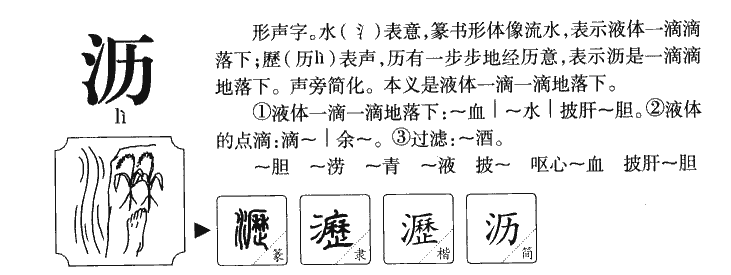 沥
lì
形声字。水(氵)表意,篆书形体像流水,表示液体一滴滴
落下;歷(历lì)表声,历有一步步地经历意,表示沥是一滴滴
地落下。声旁简化。本义是液体一滴一滴地落下。
①液体一滴一滴地落下:～血|～水|披肝～胆。②液体
的点滴:滴～|余～。③过滤:～酒。
～胆 ～涝 ～青 ～液 披～ 呕心～血 披肝～胆
瀝 篆
瀝 隶
瀝 楷
沥 简